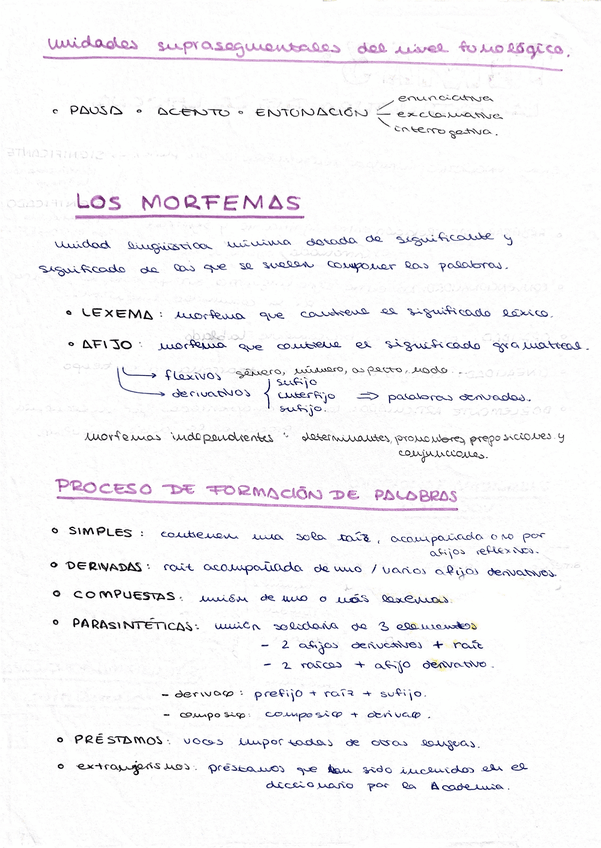 unidades suprasegmentales del nivel fonológico.
• PAUSA • ACENTO • ENTONACIÓN
enunciativa
exclamativa
interrogativa.
LOS MORFEMAS
unidad lingüística mínima dotada de significante y
significado de las que se suelen componer las palabras.
• LEXEMA: morfema que contiene el significado léxico.
• AFIJO: morfema que contiene el significado gramatical.
→ flexivos género, número, aspecto, modo...
→ derivativos { sufijo
interfijo ⇒ palabras derivadas.
sufijo.
morfemas independientes: determinantes, pronombres, preposiciones y
conjunciones.
PROCESO DE FORMACIÓN DE PALABRAS
• SIMPLES: contienen una sola raíz, acompañada o no por
afijos reflexivos.
• DERIVADAS: raíz acompañada de uno / varios afijos derivativos.
• COMPUESTAS: unión de uno o más lexemas.
• PARASINTÉTICAS: unión solidaria de 3 elementos
- 2 afijos derivativos + raíz
- 2 raíces + afijo derivativo.
- derivacº: prefijo + raíz + sufijo.
- composicº: composicº + derivacº.
• PRÉSTAMOS: voces importadas de otras lenguas.
• extranjerismos: préstamos que han sido incluidos en el
diccionario por la Academia.